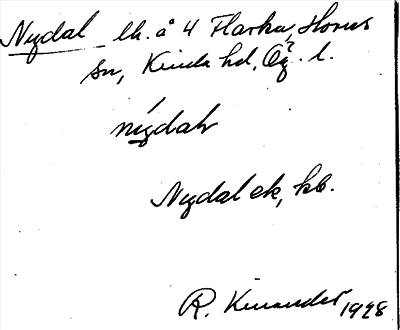 Nydal lh. å 4 Flarka, Horns
sn, Kinda hd, Ög. l.
nýdal
Nydal ek, kb.
R. Kinander 1928